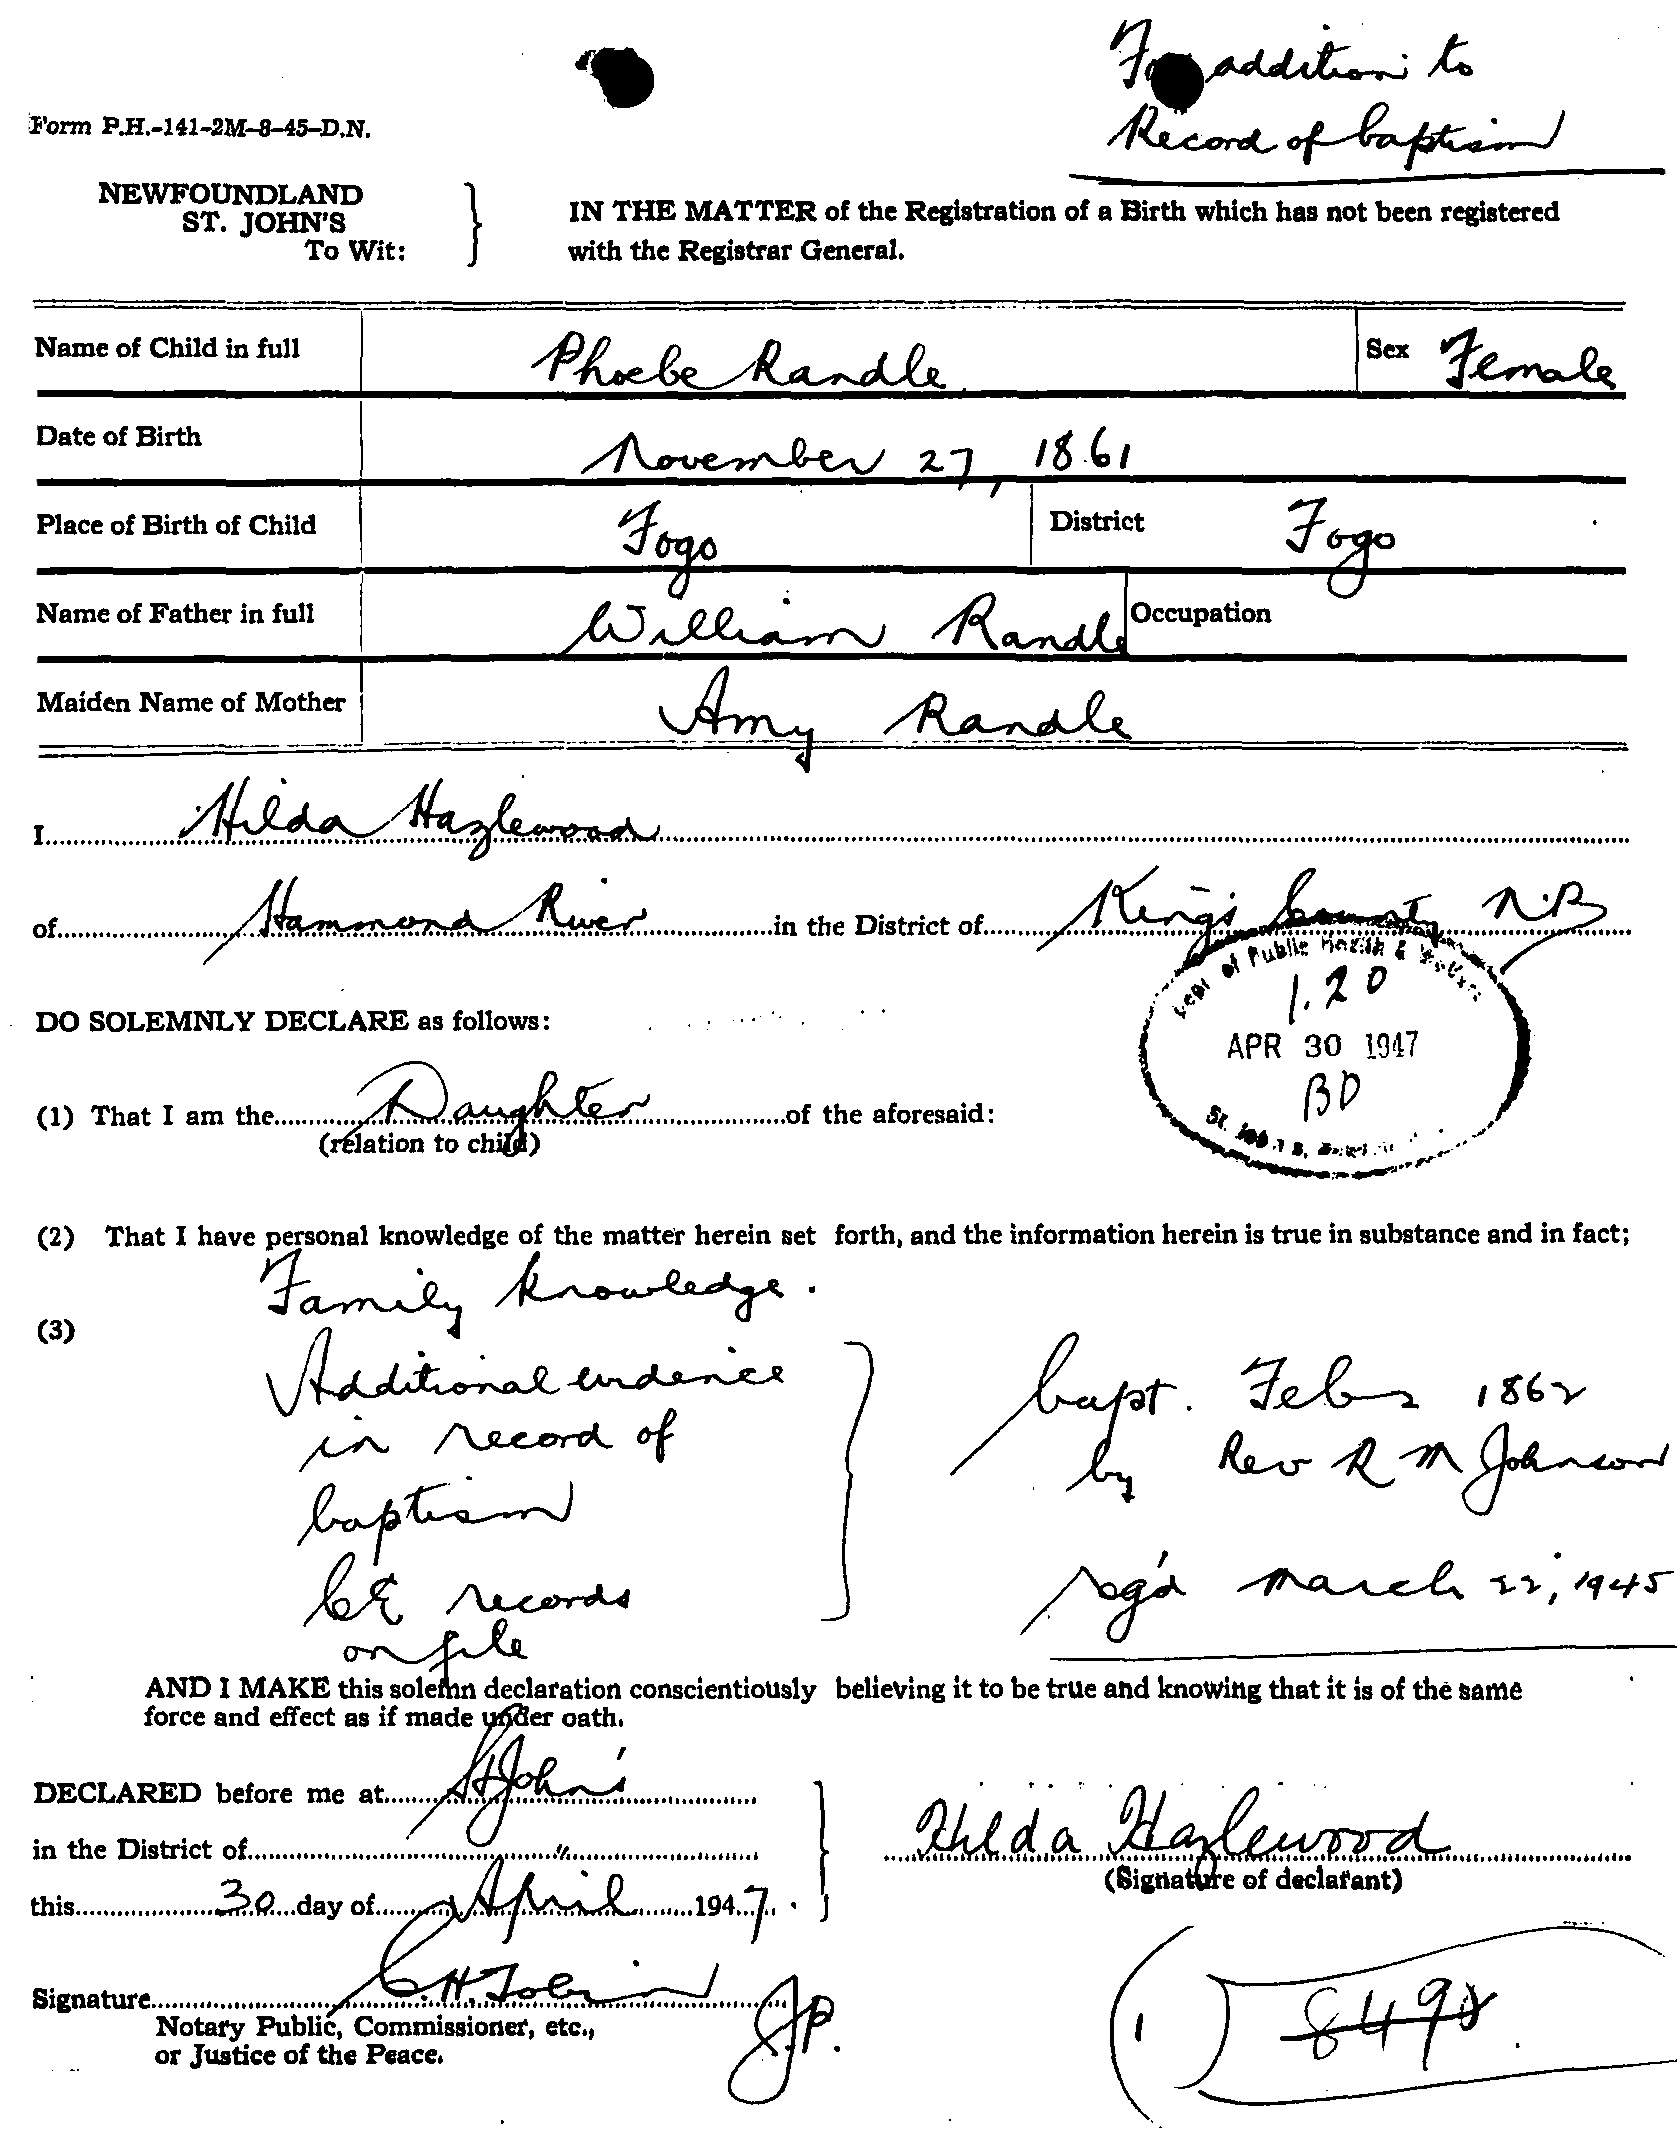 For addition to
Record of baptism
Form P.H.-141-2M-8-45-D.N.
NEWFOUNDLAND
ST. JOHN'S
To Wit:
IN THE MATTER of the Registration of a Birth which has not been registered
with the Registrar General.
Name of Child in full Phoebe Randle Sex Female
Date of Birth November 27, 1861
Place of Birth of Child Fogo District Fogo
Name of Father in full William Randle Occupation
Maiden Name of Mother Amy Randle
I Hilda Hazlewood
of Hammond River in the District of King's County N.B
Dept of Public Health &
1.20
APR 30 1947
BD
St. John's,
DO SOLEMNLY DECLARE as follows:
(1) That I am the Daughter of the aforesaid:
(relation to child)
(2) That I have personal knowledge of the matter herein set forth, and the information herein is true in substance and in fact;
Family knowledge.
(3)
Additional evidence
in record of
baptism
CE records
on file
bapt. Feb 2 1862
by Rev R M Johnson
reg'd March 22, 1945
AND I MAKE this solemn declaration conscientiously believing it to be true and knowing that it is of the same
force and effect as if made under oath.
DECLARED before me at St John's
in the District of "
this 30 day of April 1947.
Hilda Hazlewood
(Signature of declarant)
Signature C.H. Tobin J.P.
Notary Public, Commissioner, etc.,
or Justice of the Peace.
(1) 8498